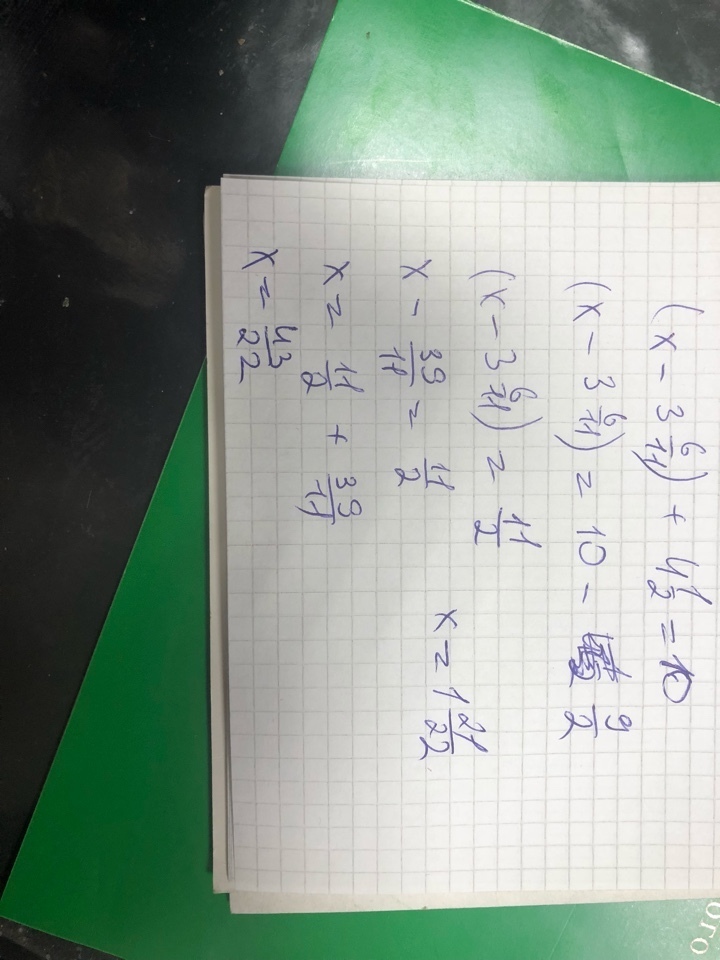 (x - 3 6/11) + 4 1/2 = 10
(x - 3 6/11) = 10 - 9/2
(x - 3 6/11) = 11/2
x - 39/11 = 11/2
x = 11/2 + 39/11
x = 43/22
x = 1 21/22
ого